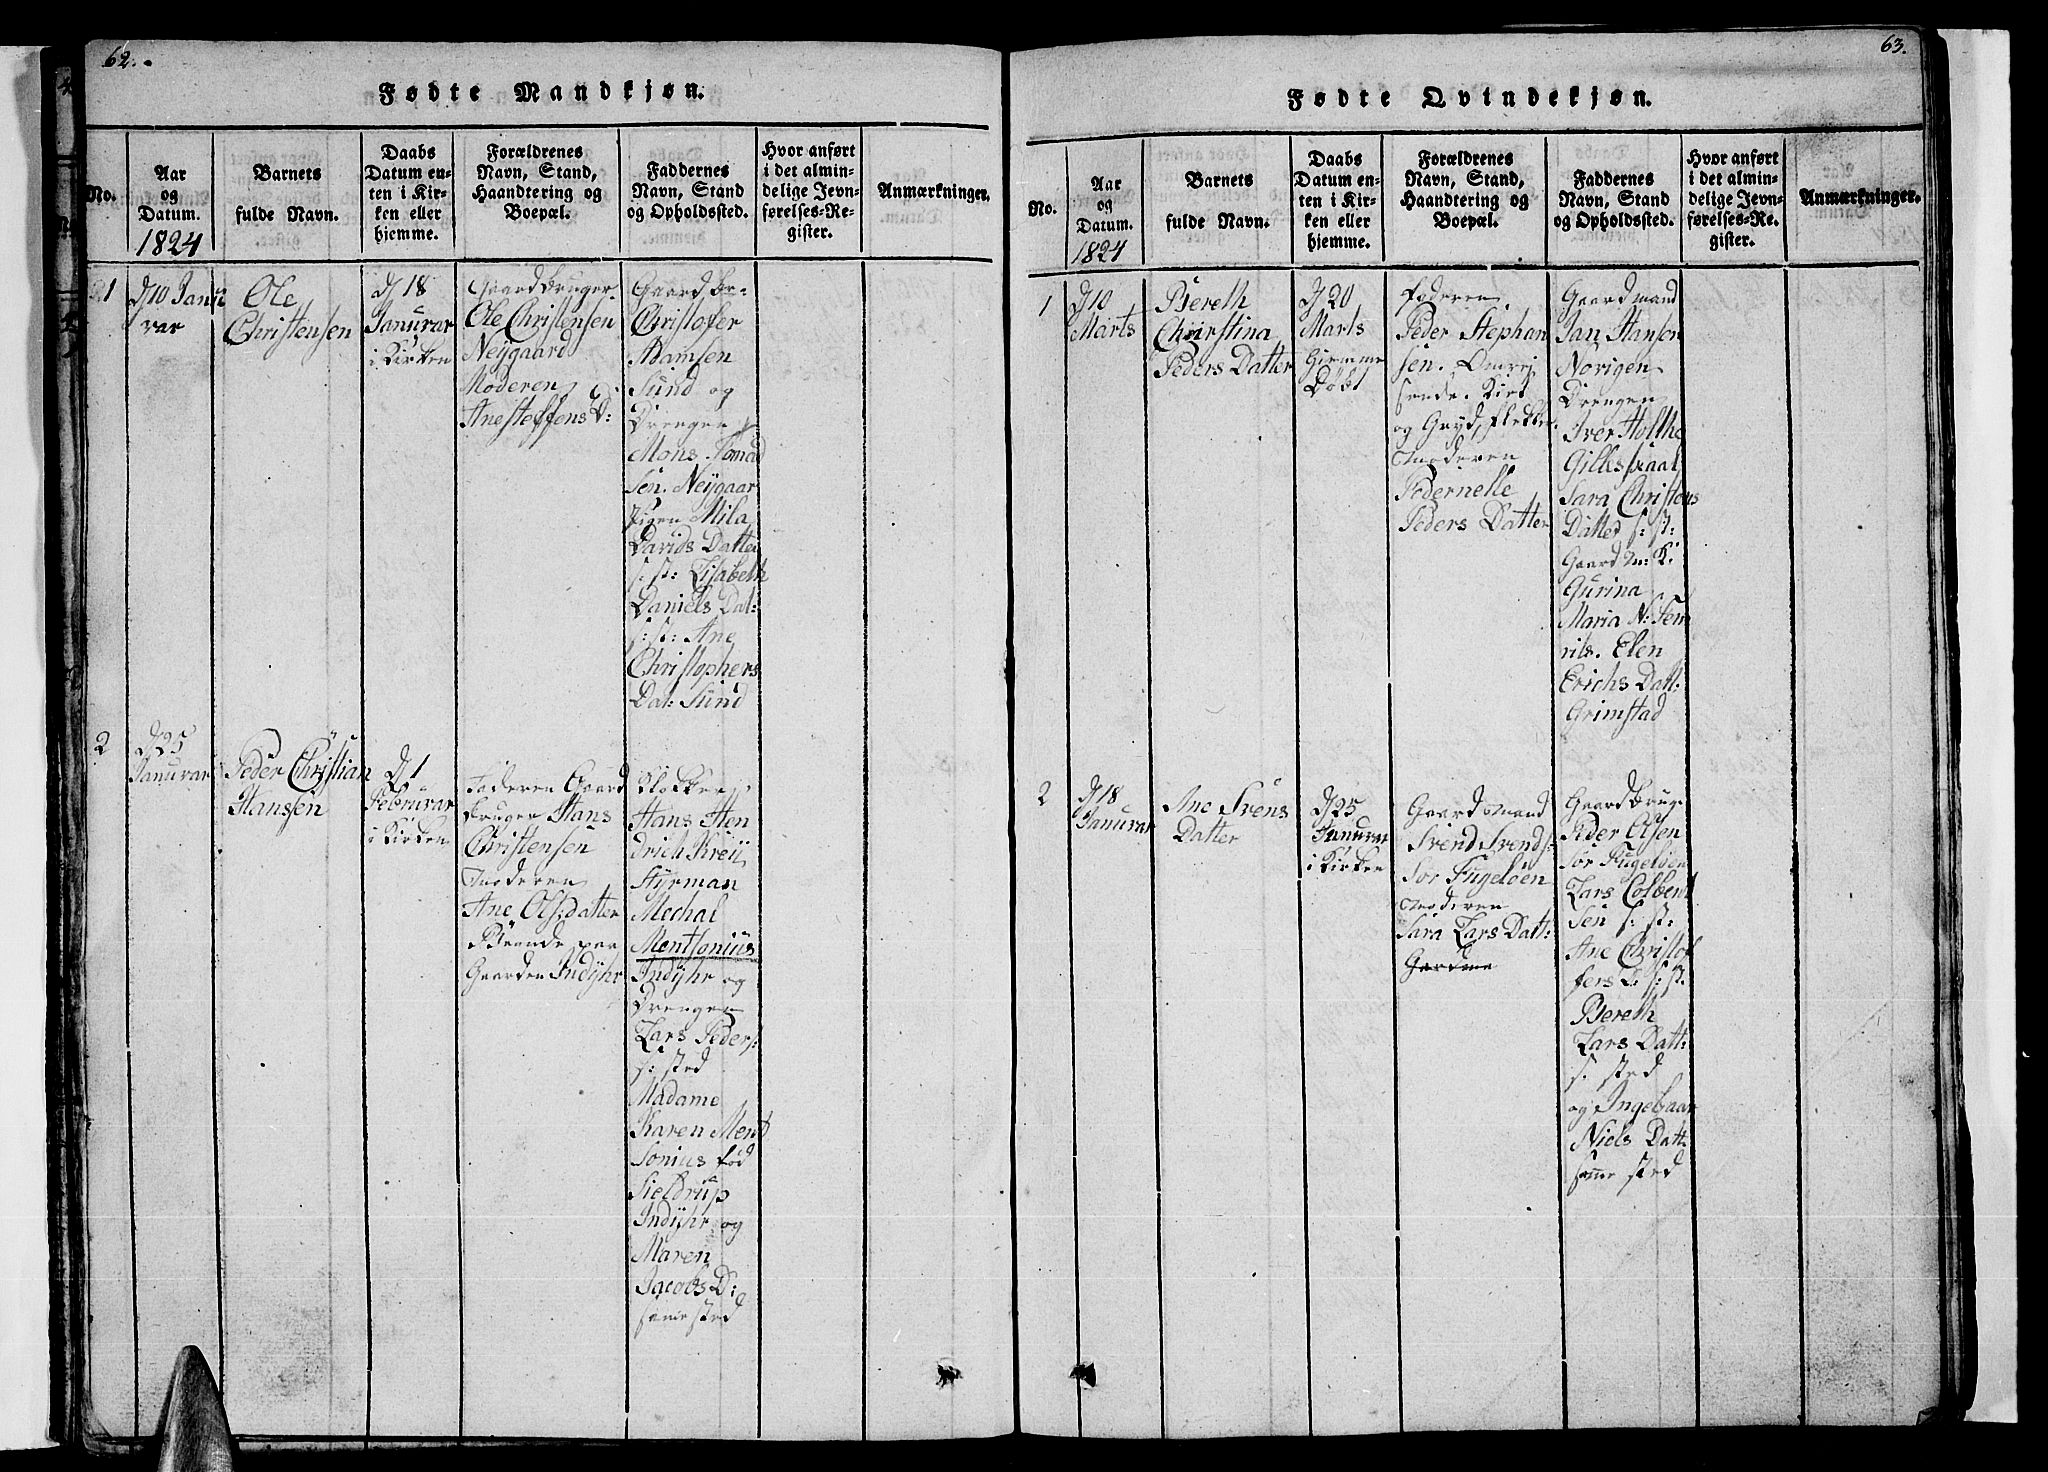 62.
Fødte Mandkjøn.
No.
Aar
og
Datum.
1824
Barnets
fulde Navn.
Daabs
Datum en-
ten i Kir-
ken eller
hjemme.
Forældrenes
Navn, Stand,
Haandtering og
Boepæl.
Faddernes
Navn, Stand
og Opholdssted.
Hvor anført
i det almin-
delige Jevn-
førelses-Re-
gister.
Anmærkninger.
1
D 10 Janu
var
Ole
Christensen
D 18
Janurar
i Kirken
Gaardbruger
Ole Christensen
Neÿgaard
Moderen
Ane Steffens D:
Gaardbr-
Christofer
Adamsen
Sund og
Drengen
Mons Tomad
sen. Neÿgaar
Pigen Mila
Davids Datter
s: st: Lisabeth
Daniels Dat:
s: st: Ane
Christophers
Dat: Sund
2
D 25
Janurar
Peder Christian
Hansen
D 1
Februrar
i Kirken
Faderen Gaard
bruger Hans
Christensen
Moderen
Ane Olsdatter
Boende paa
Gaarden Indÿhr
Klokker
Hans Hen
drich Kreÿ
Stÿrman
Mechal
Mentsonius
Indÿhr og
Drengen
Lars Peders:
s: sted
Madame
Karen Ment
sonius fød
Sieldrup
Indÿhr og
Maren
Jacobs D:
samme sted
63.
Fødte Qvindekjøn.
No.
Aar
og
Datum.
1824
Barnets
fulde Navn.
Daabs
Datum en-
ten i Kir-
ken eller
hjemme.
Forældrenes
Navn, Stand,
Haandtering og
Boepæl.
Faddernes
Navn, Stand
og Opholdssted.
Hvor anført
i det almin-
delige Jevn-
førelses-Re-
gister.
Anmærkninger.
1
D 10
Marts
Bereth
Christina
Peders Datter
D 20
Marts
Giemme
Døbt
Faderen
Peder Stephan
sen. Omrej
sende. Kiel
og Gryd, flekker
Moderen
Pedernelle
Peders Datter
Gaardmand
Jan Hansen
Norigen
Drengen
Iver Holthe
Gillesskaal
Sara Christens
Datter s: st:
Gaard m: K:
Gurina
Maria N: Fen
nis. Elen
Erichs Datt:
Grimstad
2
D 18
Janurar
Ane Svens
Datter
D 25
Janurar
i Kirken
Gaardmand
Svend Svends:
Sør Fugeløen
Moderen
Sara Lars Datt:
Gaardbrug
Peder Olsen
Sør Fugeløen
Lars Colbent
sen s: st:
Ane Christof
fers D s: st.
Bereth
Lars Datt:
s. sted
og Ingebaar
Niels Datt
samme sted